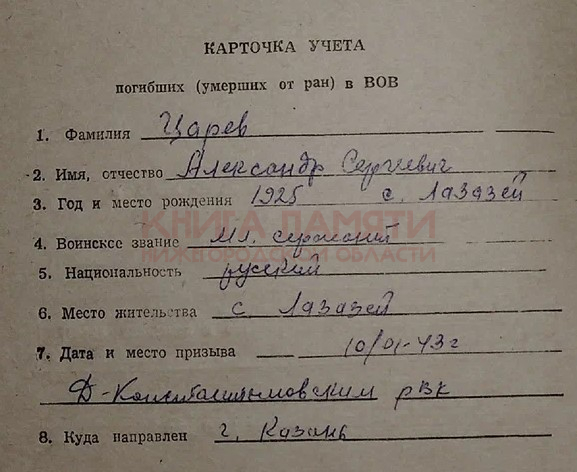 КАРТОЧКА УЧЕТА
погибших (умерших от ран) в ВОВ
1. Фамилия Царев
2. Имя, отчество Александр Сергеевич
3. Год и место рождения 1925 с. Лазазей
КНИГА ПАМЯТИ
4. Воинское звание мл. сержант
НИЖЕГОРОДСКОЙ ОБЛАСТИ
5. Национальность русский
6. Место жительства с Лазазей
7. Дата и место призыва 10/01-43 г
Д-Константиновским рВК
8. Куда направлен г. Казань